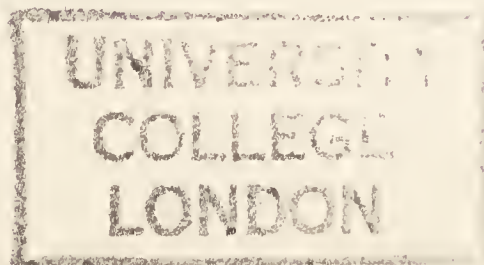 UNIVERSITY
COLLEGE
LONDON